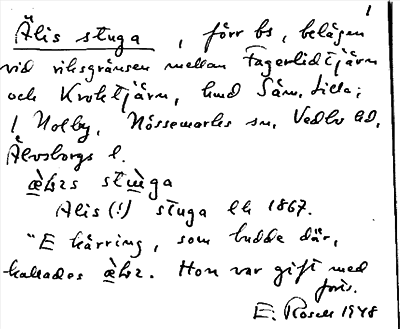 1
Älis stuga, förr bs, belägen
vid riksgränsen mellan Fagerlidtjärn
och Kroktjärn, hmd Säm, Lilla;
/ Nolby, Nössemarks sn, Vedbo hd,
Älvsborgs l.
stuga
Alis (!) stuga Ek 1867.
"E kärring, som budde där,
kallades. Hon var gift med
E. Rosell 1948